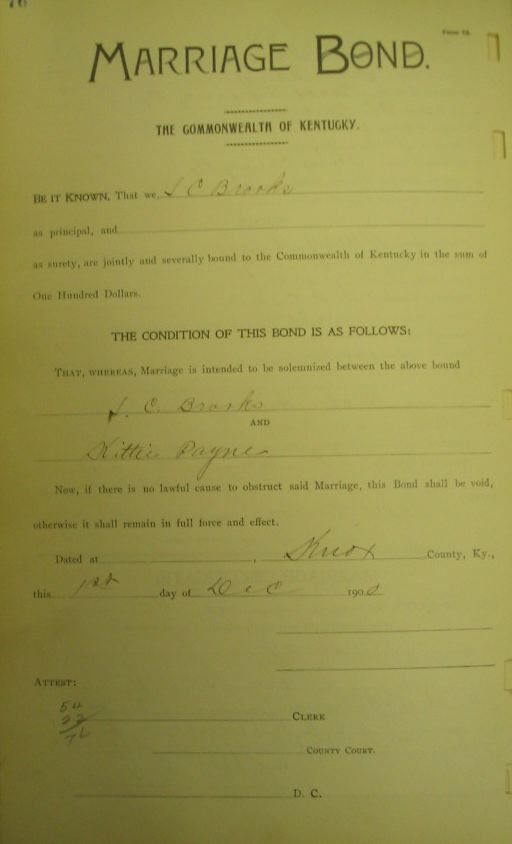 Form 10.
MARRIAGE BOND.
THE COMMONWEALTH OF KENTUCKY.
BE IT KNOWN, That we, J C Brooks
as principal, and
as surety, are jointly and severally bound to the Commonwealth of Kentucky in the sum of
One Hundred Dollars.
THE CONDITION OF THIS BOND IS AS FOLLOWS:
THAT, WHEREAS, Marriage is intended to be solemnized between the above bound
J. C. Brooks
AND
Kittie Payne
Now, if there is no lawful cause to obstruct said Marriage, this Bond shall be void,
otherwise it shall remain in full force and effect.
Dated at , Knox County, Ky.,
this 1st day of Dec 1900
ATTEST:
54
22
76
CLERK
COUNTY COURT.
D. C.